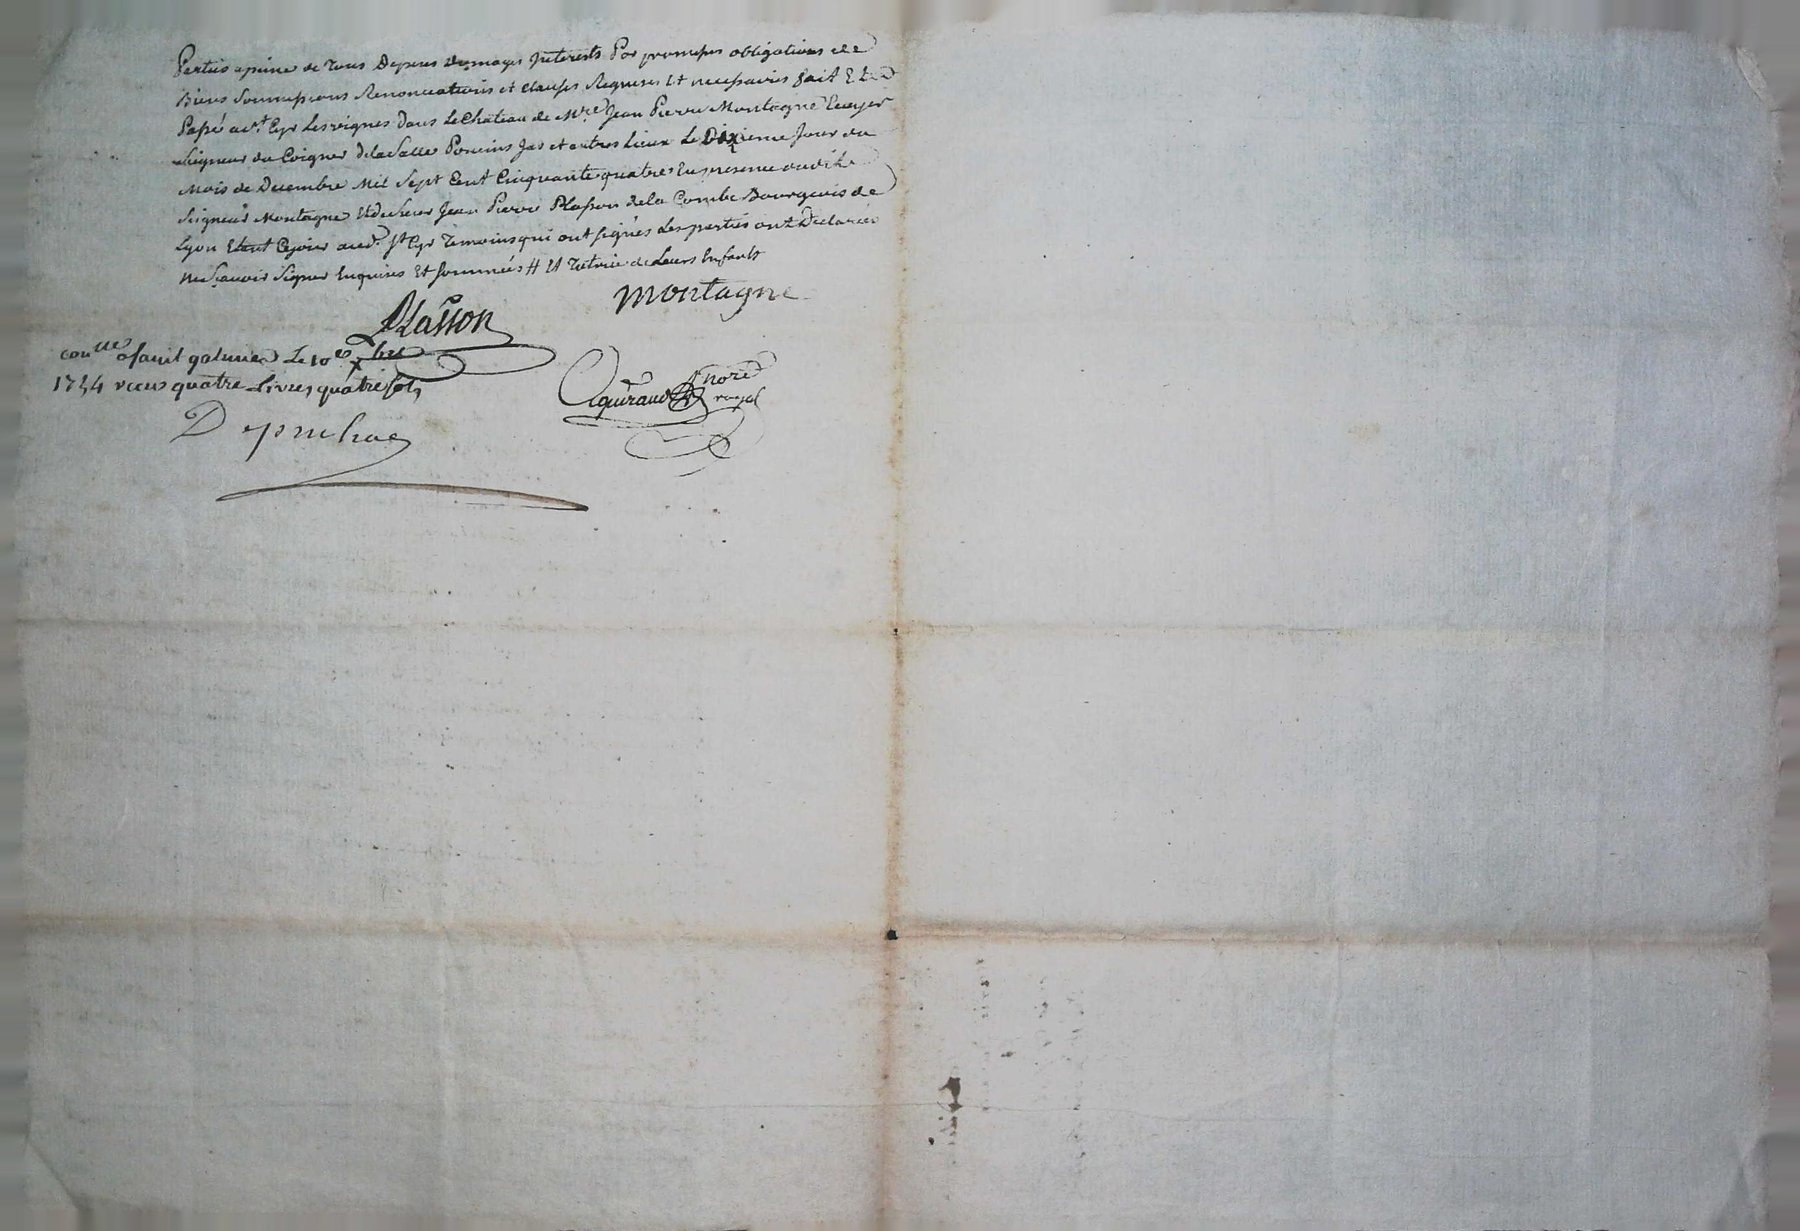 Parties apeine de tous Depens domages Interests Par promesses obligations de
Biens Soumissions Renonciations et clauses Requises Et necessaires fait Et
Passé a St Cyr Les vignes Dans Le Chateau de Mre Jean Pierre Montagne Ecuyer
Seigneur du Coigner Dela Salle Poncins Jas et autres Lieux Le Dixieme Jour du
Mois de Decembre Mil Sept Cent Cinquante quatre En presence dudit
Seigneur Montagne Et du Sieur Jean Pierre Plasson dela Combe Bourgeois de
Lyon Etant Cejour aud. St Cyr Temoins qui ont signés Les parties ont Declarées
ne Sçavoir Signer Enquises Et sommées # Et Tutrice de Leurs Enfants
montagne
Plasson
con lle a faint galmier Le 10e xbre
1754 receus quatre Livres quatre sols
nore
royal